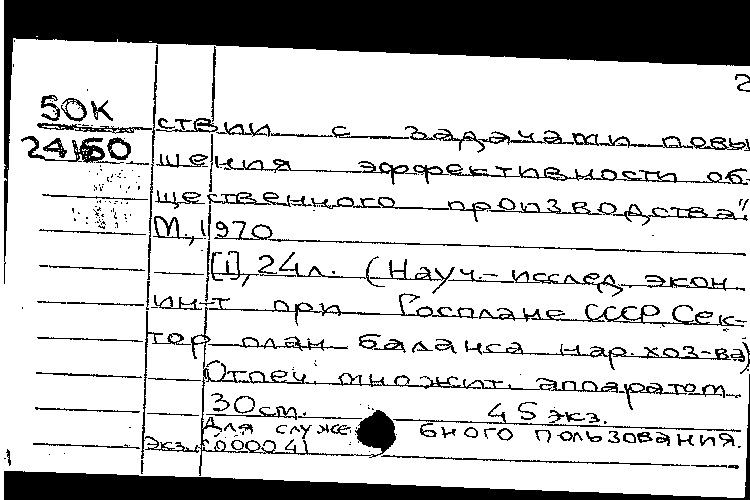 2
50К
24150
ствии с задачами повы
шения эффективности об-
щественного производства".
М., 1970
[1], 24л. (Науч.-исслед. экон.
ин-т при Госплане СССР. Сек-
тор план. баланса нар. хоз-ва)
Отпеч. множит. аппаратом.
30см. 45 экз.
Для служебного пользования.
Экз. (00004)